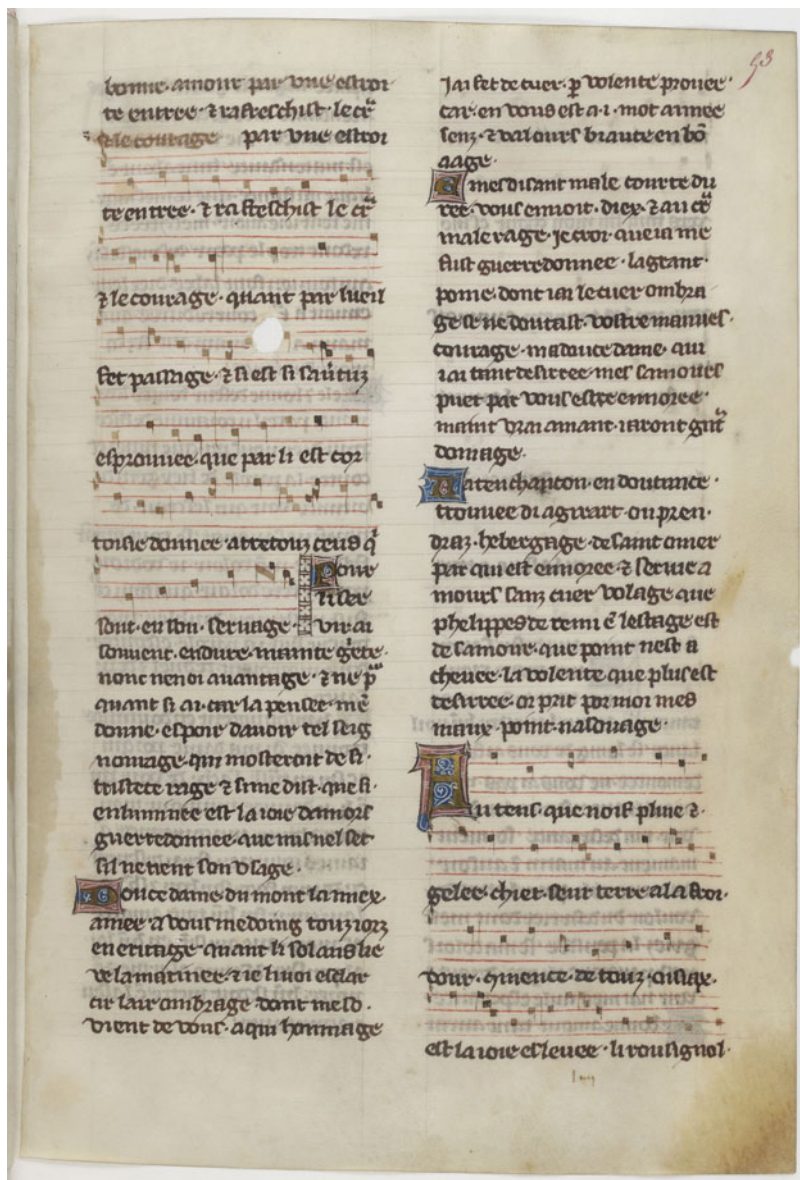 bonne·amour par vne estroi
te entree·⁊ rafreschist·le cᷣ
⁊ le courage par vne estroi
te entree·⁊ rafreschist le cᷣ
⁊ le courage·quant par lueil
fet passage·⁊ si est si
esprouuee·que par li est cor
toisie donnee·atretouz ceus q̇
Pour
sont·en son·seruage· vir ai
souuent·endure·mainte
nonc nen oi auantage·⁊ ne
quant si ai·car la pensee·mē
donne·espoir dauoir tel seig
nourage·qui mosteroit de si·
tristece rage ⁊ si me dist·que si·
enluminee est la ioie damors
guerredonnee·que nus nel set
sil ne tient son vsage·
Douce dame·du mont la miex·
amee·a vous me doing touz iorz
en eritage·quant li solaus lie
ue la matinee·⁊ ie li uoi esclar
cir lair ombrage·dont me so·
uient de vous·a qui hommage
iai fet de cuer·p̱ volente prouee·
car·en vous est a·i·mot armee
senz·⁊ valours biaute en bō
aage·
mesdisant male courte du
ree·vous enuoit·diex·⁊ au cᷣ
male rage·ie croi·que ia me
fust guerredonnee·la grant·
poine·dont iai le cuer ombra
ge se ne doutast·vostre mauues·
courage·ma douce dame·qui
iai tant desirree·mes samours
puet par vous estre ennoree·
maint vrai amant·iaront
domage·
Va ten chancon·en doutance·
trouuee di a girart·ou pren·
draz·hebergage·de saint omer
par qui est ennoree·⁊ seruie a
mours sanz cuer volage que
phelippes de remi ē lestage est
de samour·que point nest a
cheuee·la volente que plus est
desirree·or prit por moi mes
maux·point·nasouage·
Au tens·que noif pluie ⁊·
gelee·chiet·seur terre a la froi·
dour·9mence·de touz·oisiax·
est la ioie esleuee·li rousignol·